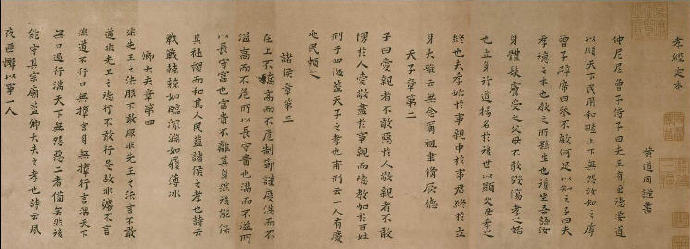 孝經定本
黃道周謹書
仲尼凥曾子侍子曰先王有至德要道
以順天下民用和睦上下無怨汝知之乎
曾子辟席曰參不敏何足以知之子曰夫
孝德之本也教之所繇生也復坐吾語汝
身體髮膚受之父母不敢毀傷孝之始
也立身行道揚名於後世以顯父母孝之
終也夫孝始於事親中於事君終於立
身大雅云無念爾祖聿脩厥德
天子章第二
子曰愛親者不敢惡於人敬親者不敢
慢於人愛敬盡於事親而德教加於百姓
刑于四海蓋天子之孝也甫刑云一人有慶
兆民賴之
諸侯章第三
在上不驕高而不危制節謹度滿而不
溢高而不危所以長守貴也滿而不溢所
以長守富也富貴不離其身然後能保
其社稷而和其人民蓋諸侯之孝也詩云
戰戰兢兢如臨深淵如履薄冰
卿大夫章第四
非先王之法服不敢服非先王之法言不敢
道非先王之德行不敢行是故非法不言
非道不行口無擇言身無擇行言滿天下
無口過行滿天下無怨惡三者備矣然後
能守其宗廟蓋卿大夫之孝也詩云夙
夜匪懈以事一人